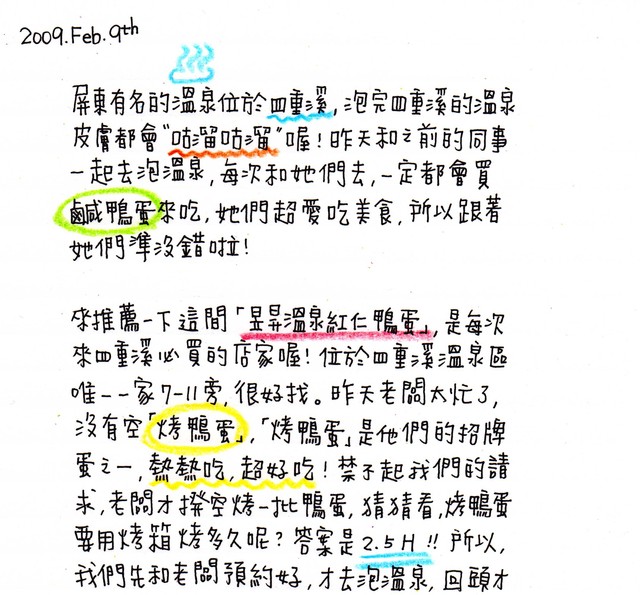 2009.Feb.9th
屏東有名的溫泉位於四重溪，泡完四重溪的溫泉
皮膚都會"咕溜咕溜"喔！昨天和之前的同事
一起去泡溫泉，每次和她們去，一定都會買
鹹鴨蛋來吃，她們超愛吃美食，所以跟著
她們準沒錯啦！
來推薦一下這間「昱昇溫泉紅仁鴨蛋」，是每次
來四重溪必買的店家喔！位於四重溪溫泉區
唯一一家7-11旁，很好找。昨天老闆太忙了，
沒有空「烤鴨蛋」，「烤鴨蛋」是他們的招牌
蛋之一，熱熱吃，超好吃！禁不起我們的請
求，老闆才撥空烤一批鴨蛋，猜猜看，烤鴨蛋
要用烤箱烤多久呢？答案是2.5H!! 所以，
我們先和老闆預約好，才去泡溫泉，回頭才